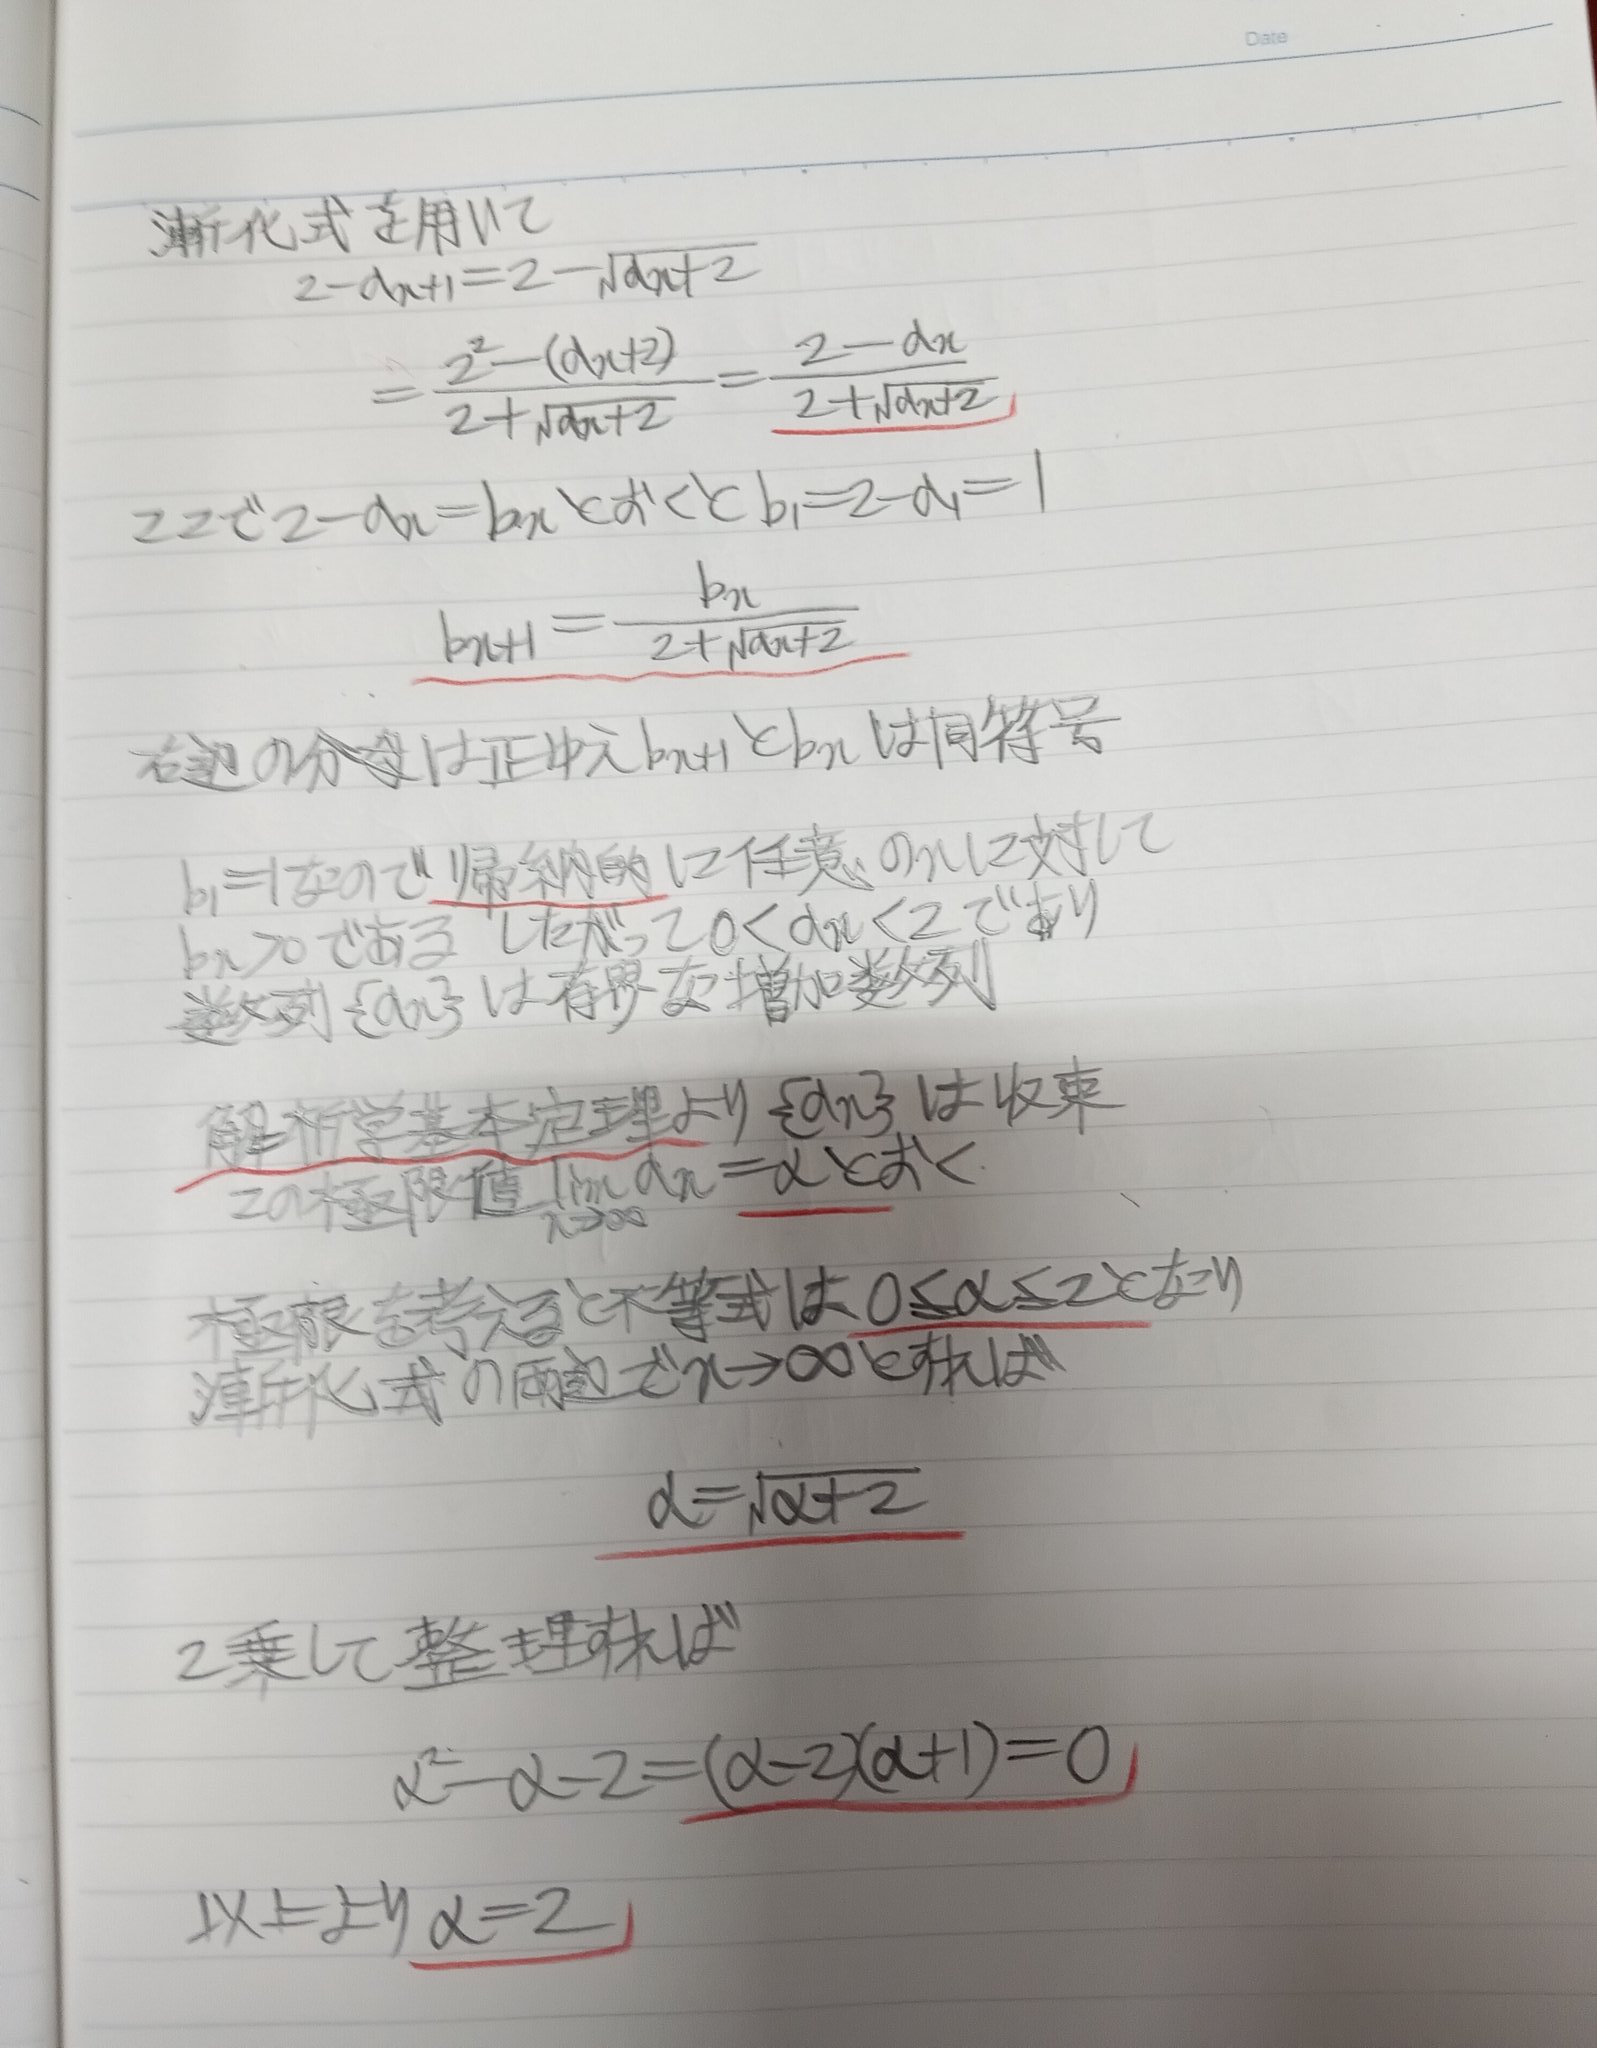 Date
漸化式を用いて
2-an+1=2-√an+2
=2²-(an+2)/2+√an+2=2-an/2+√an+2
ここで2-an=bnとおくとb₁=2-a₁=1
bn+1=bn/2+√an+2
右辺の分母は正ゆえbn+1とbnは同符号
b₁=1なので帰納的に任意のnに対して
bn>0である したがって0<an<2であり
数列{an}は有界な増加数列
解析学基本定理より{an}は収束
この極限値 lim n→∞ an=αとおく
極限を考えると不等式は0≦α≦2となり
漸化式の両辺でn→∞とすれば
α=√α+2
2乗して整理すれば
α²-α-2=(α-2)(α+1)=0
以上よりα=2